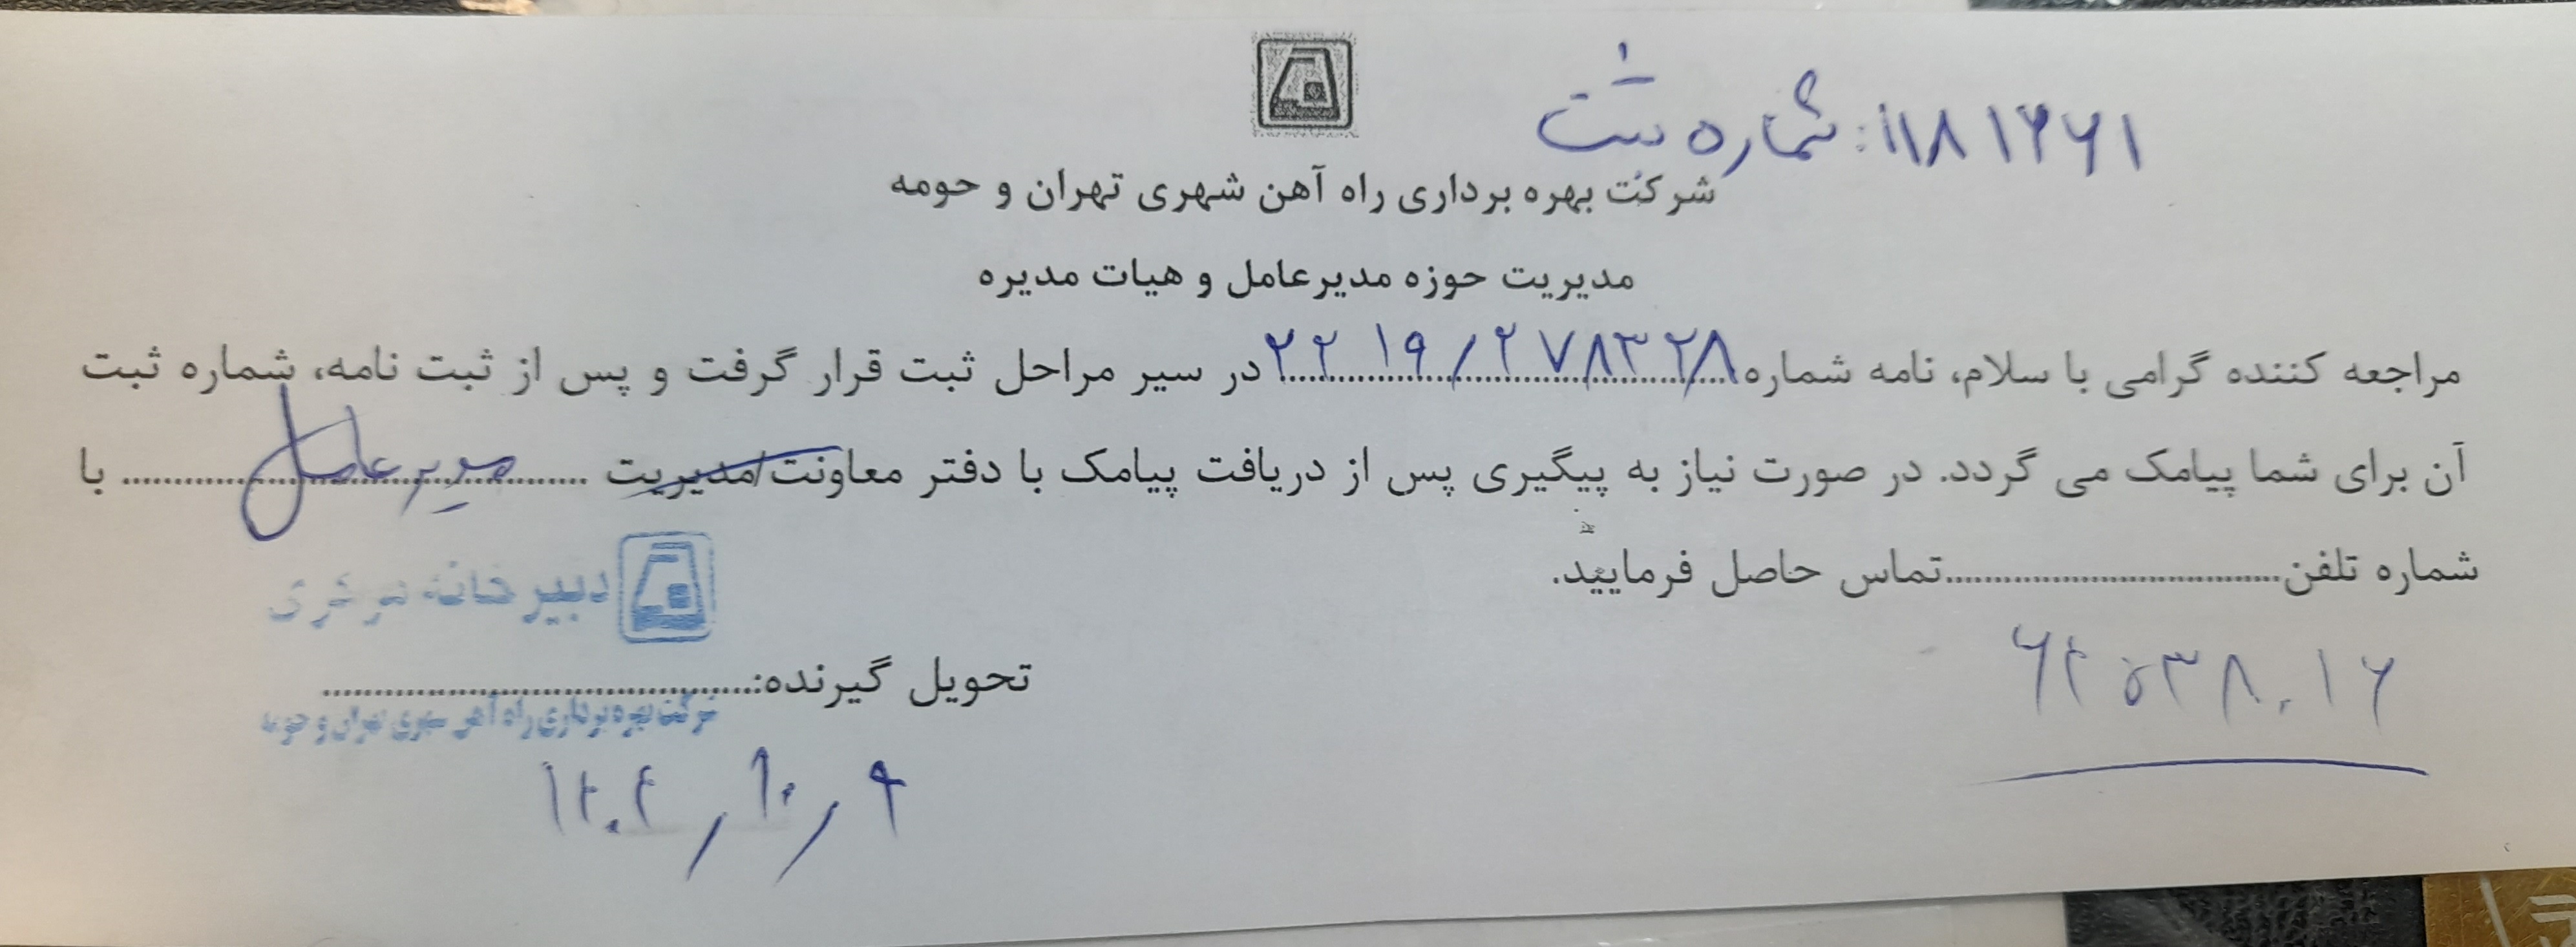 شماره ثبت: ۱۱۸۱۲۶۱
شرکت بهره برداری راه آهن شهری تهران و حومه
مدیریت حوزه مدیرعامل و هیات مدیره
مراجعه کننده گرامی با سلام، نامه شماره ۲۲۱۹/۲۷۸۳۲۸ در سیر مراحل ثبت قرار گرفت و پس از ثبت نامه، شماره ثبت
آن برای شما پیامک می گردد. در صورت نیاز به پیگیری پس از دریافت پیامک با دفتر معاونت/مدیریت مدیرعامل با
شماره تلفن....................تماس حاصل فرمایید.
دبیرخانه مرکزی
۶۴۵۳۸۰۱۶
تحویل گیرنده:....................
شرکت بهره برداری راه آهن شهری تهران و حومه
۱۴۰۴/۱۰/۹